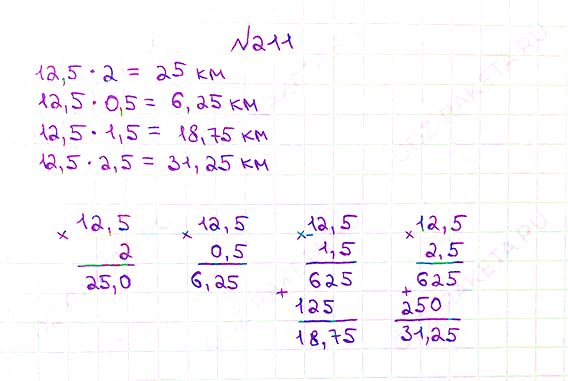 №211
12,5 · 2 = 25 км
12,5 · 0,5 = 6,25 км
12,5 · 1,5 = 18,75 км
12,5 · 2,5 = 31,25 км
× 12,5
2
25,0
× 12,5
0,5
6,25
× 12,5
1,5
625
+
125
18,75
× 12,5
2,5
625
+
250
31,25